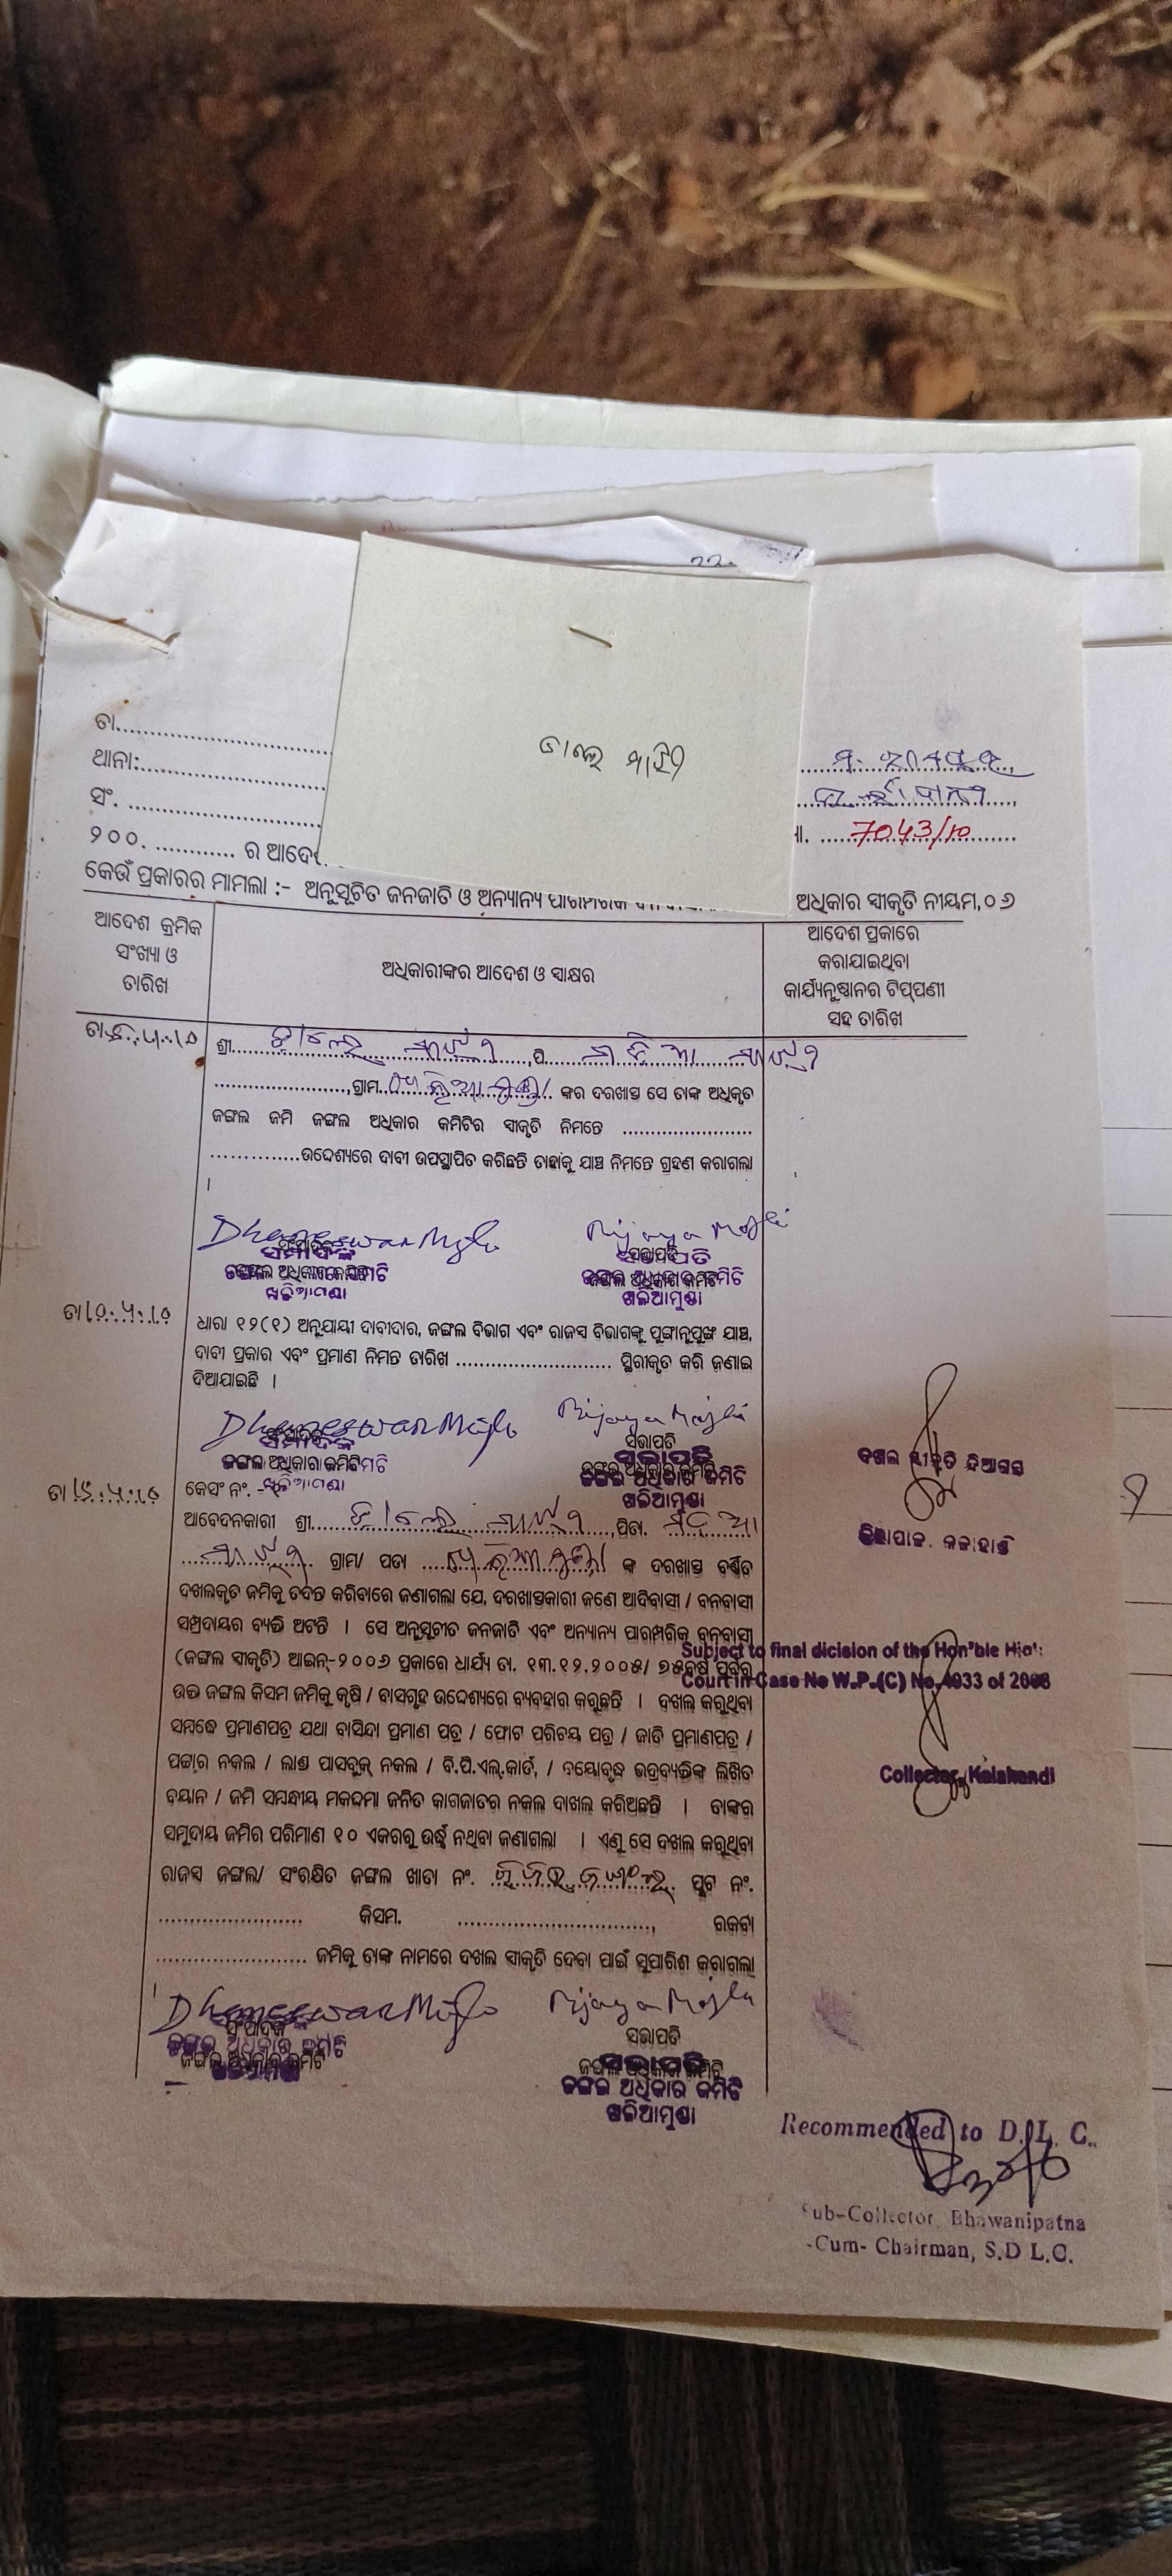 ତାଲେ ମାଝୀ
ତା
ଥାନା:
ସଂ.
7043/10
୨୦୦. ର ଆଦେ
କେଉଁ ପ୍ରକାରର ମାମଲା :- ଅନୁସୂଚିତ ଜନଜାତି ଓ ଅନ୍ୟାନ୍ୟ ପାରମ୍ପରିକ ଅଧିକାର ସ୍ୱୀକୃତି ନୀୟମ,୦୬
ଆଦେଶ କ୍ରମିକ
ସଂଖ୍ୟା ଓ
ତାରିଖ
ଅଧିକାରୀଙ୍କର ଆଦେଶ ଓ ସାକ୍ଷର
ଆଦେଶ ପ୍ରକାରେ
କରାଯାଇଥିବା
କାର୍ଯ୍ୟନୁଷ୍ଠାନର ଟିପ୍ପଣୀ
ସହ ତାରିଖ
ଶ୍ରୀ ତାଲେ ମାଝୀ ,ପି ମାଝୀ
,ଗ୍ରାମ ଖଲିଆମୁଣ୍ଡା ଙ୍କର ଦରଖାସ୍ତ ସେ ତାଙ୍କ ଅଧିକୃତ
ଜଙ୍ଗଲ ଜମି ଜଙ୍ଗଲ ଅଧିକାର କମିଟିର ସ୍ୱୀକୃତି ନିମନ୍ତେ
ଉଦ୍ଦେଶ୍ୟରେ ଦାବୀ ଉପସ୍ଥାପିତ କରିଛନ୍ତି ତାହାକୁ ଯାଞ୍ଚ ନିମନ୍ତେ ଗ୍ରହଣ କରାଗଲା
।
Dhaneswar Majhi Bijaya Majhi
ସଂପାଦକ ସଭାପତି
ଜଙ୍ଗଲ ଅଧିକାର କମିଟି ଜଙ୍ଗଲ ଅଧିକାର କମିଟି
ଖଲିଆମୁଣ୍ଡା ଖଲିଆମୁଣ୍ଡା
ଧାରା ୧୨(୧) ଅନୁଯାୟୀ ଦାବୀଦାର, ଜଙ୍ଗଲ ବିଭାଗ ଏବଂ ରାଜସ୍ୱ ବିଭାଗଙ୍କୁ ପୁଙ୍ଖାନୁପୁଙ୍ଖ ଯାଞ୍ଚ,
ଦାବୀ ପ୍ରକାର ଏବଂ ପ୍ରମାଣ ନିମନ୍ତ ତାରିଖ ସ୍ଥିରୀକୃତ କରି ଜଣାଇ
ଦିଆଯାଇଛି ।
Dhaneswar Majhi Bijaya Majhi
ସଂପାଦକ ସଭାପତି
ଜଙ୍ଗଲ ଅଧିକାର କମିଟି ଜଙ୍ଗଲ ଅଧିକାର କମିଟି
ଖଲିଆମୁଣ୍ଡା ଖଲିଆମୁଣ୍ଡା
କେସଂ ନଂ. -
ଦଖଲ ସ୍ୱୀକୃତି ଦିଆଗଲା
ଜିଲ୍ଲାପାଳ, କଳାହାଣ୍ଡି
ଆବେଦନକାରୀ ଶ୍ରୀ ତାଲେ ମାଝୀ ,ପିତା.
ମାଝୀ ଗ୍ରାମ/ ପଡା ଖଲିଆମୁଣ୍ଡା ଙ୍କ ଦରଖାସ୍ତ ବର୍ଣ୍ଣିତ
ଦଖଲକୃତ ଜମିକୁ ତଦନ୍ତ କରିବାରେ ଜଣାଗଲା ଯେ, ଦରଖାସ୍ତକାରୀ ଜଣେ ଆଦିବାସୀ / ବନବାସୀ
ସମ୍ପ୍ରଦାୟର ବ୍ୟକ୍ତି ଅଟନ୍ତି । ସେ ଅନୁସୂଚୀତ ଜନଜାତି ଏବଂ ଅନ୍ୟାନ୍ୟ ପାରମ୍ପରିକ ବନବାସୀ
(ଜଙ୍ଗଲ ସ୍ୱୀକୃତି) ଆଇନ୍-୨୦୦୬ ପ୍ରକାରେ ଧାର୍ଯ୍ୟ ତା. ୧୩.୧୨.୨୦୦୫/ ୭୫ବର୍ଷ ପୂର୍ବରୁ
ଉକ୍ତ ଜଙ୍ଗଲ କିସମ ଜମିକୁ କୃଷି / ବାସଗୃହ ଉଦ୍ଦେଶ୍ୟରେ ବ୍ୟବହାର କରୁଛନ୍ତି । ଦଖଲ କରୁଥିବା
ସମ୍ବନ୍ଧେ ପ୍ରମାଣପତ୍ର ଯଥା ବାସିନ୍ଦା ପ୍ରମାଣ ପତ୍ର / ଫୋଟ ପରିଚୟ ପତ୍ର / ଜାତି ପ୍ରମାଣପତ୍ର /
ପଟ୍ଟାର ନକଲ / ଲାଣ୍ଡ ପାସବୁକ୍ ନକଲ / ବି.ପି.ଏଲ୍.କାର୍ଡ, / ବୟୋବୃଦ୍ଧ ଭଦ୍ରବ୍ୟକ୍ତିଙ୍କ ଲିଖିତ
ବୟାନ / ଜମି ସମ୍ବନ୍ଧୀୟ ମକଦ୍ଦମା ଜନିତ କାଗଜାତର ନକଲ ଦାଖଲ କରିଅଛନ୍ତି । ତାଙ୍କର
ସମୁଦାୟ ଜମିର ପରିମାଣ ୧୦ ଏକରରୁ ଉର୍ଦ୍ଧ୍ୱ ନଥିବା ଜଣାଗଲା । ଏଣୁ ସେ ଦଖଲ କରୁଥିବା
ରାଜସ୍ୱ ଜଙ୍ଗଲ/ ସଂରକ୍ଷିତ ଜଙ୍ଗଲ ଖାତା ନଂ. ପ୍ଲଟ ନଂ.
କିସମ. , ରକବା
ଜମିକୁ ତାଙ୍କ ନାମରେ ଦଖଲ ସ୍ୱୀକୃତି ଦେବା ପାଇଁ ସୁପାରିଶ କରାଗଲା
।
Subject to final dicision of the Hon'ble
Court in Case No W.P.(C) No.4933 of 2008
Collector, Kalahandi
Dhaneswar Majhi Bijaya Majhi
ସଂପାଦକ ସଭାପତି
ଜଙ୍ଗଲ ଅଧିକାର କମିଟି ଜଙ୍ଗଲ ଅଧିକାର କମିଟି
ଖଲିଆମୁଣ୍ଡା
Recommended to D.L.C.
Sub-Collector, Bhawanipatna
-Cum- Chairman, S.D L.C.